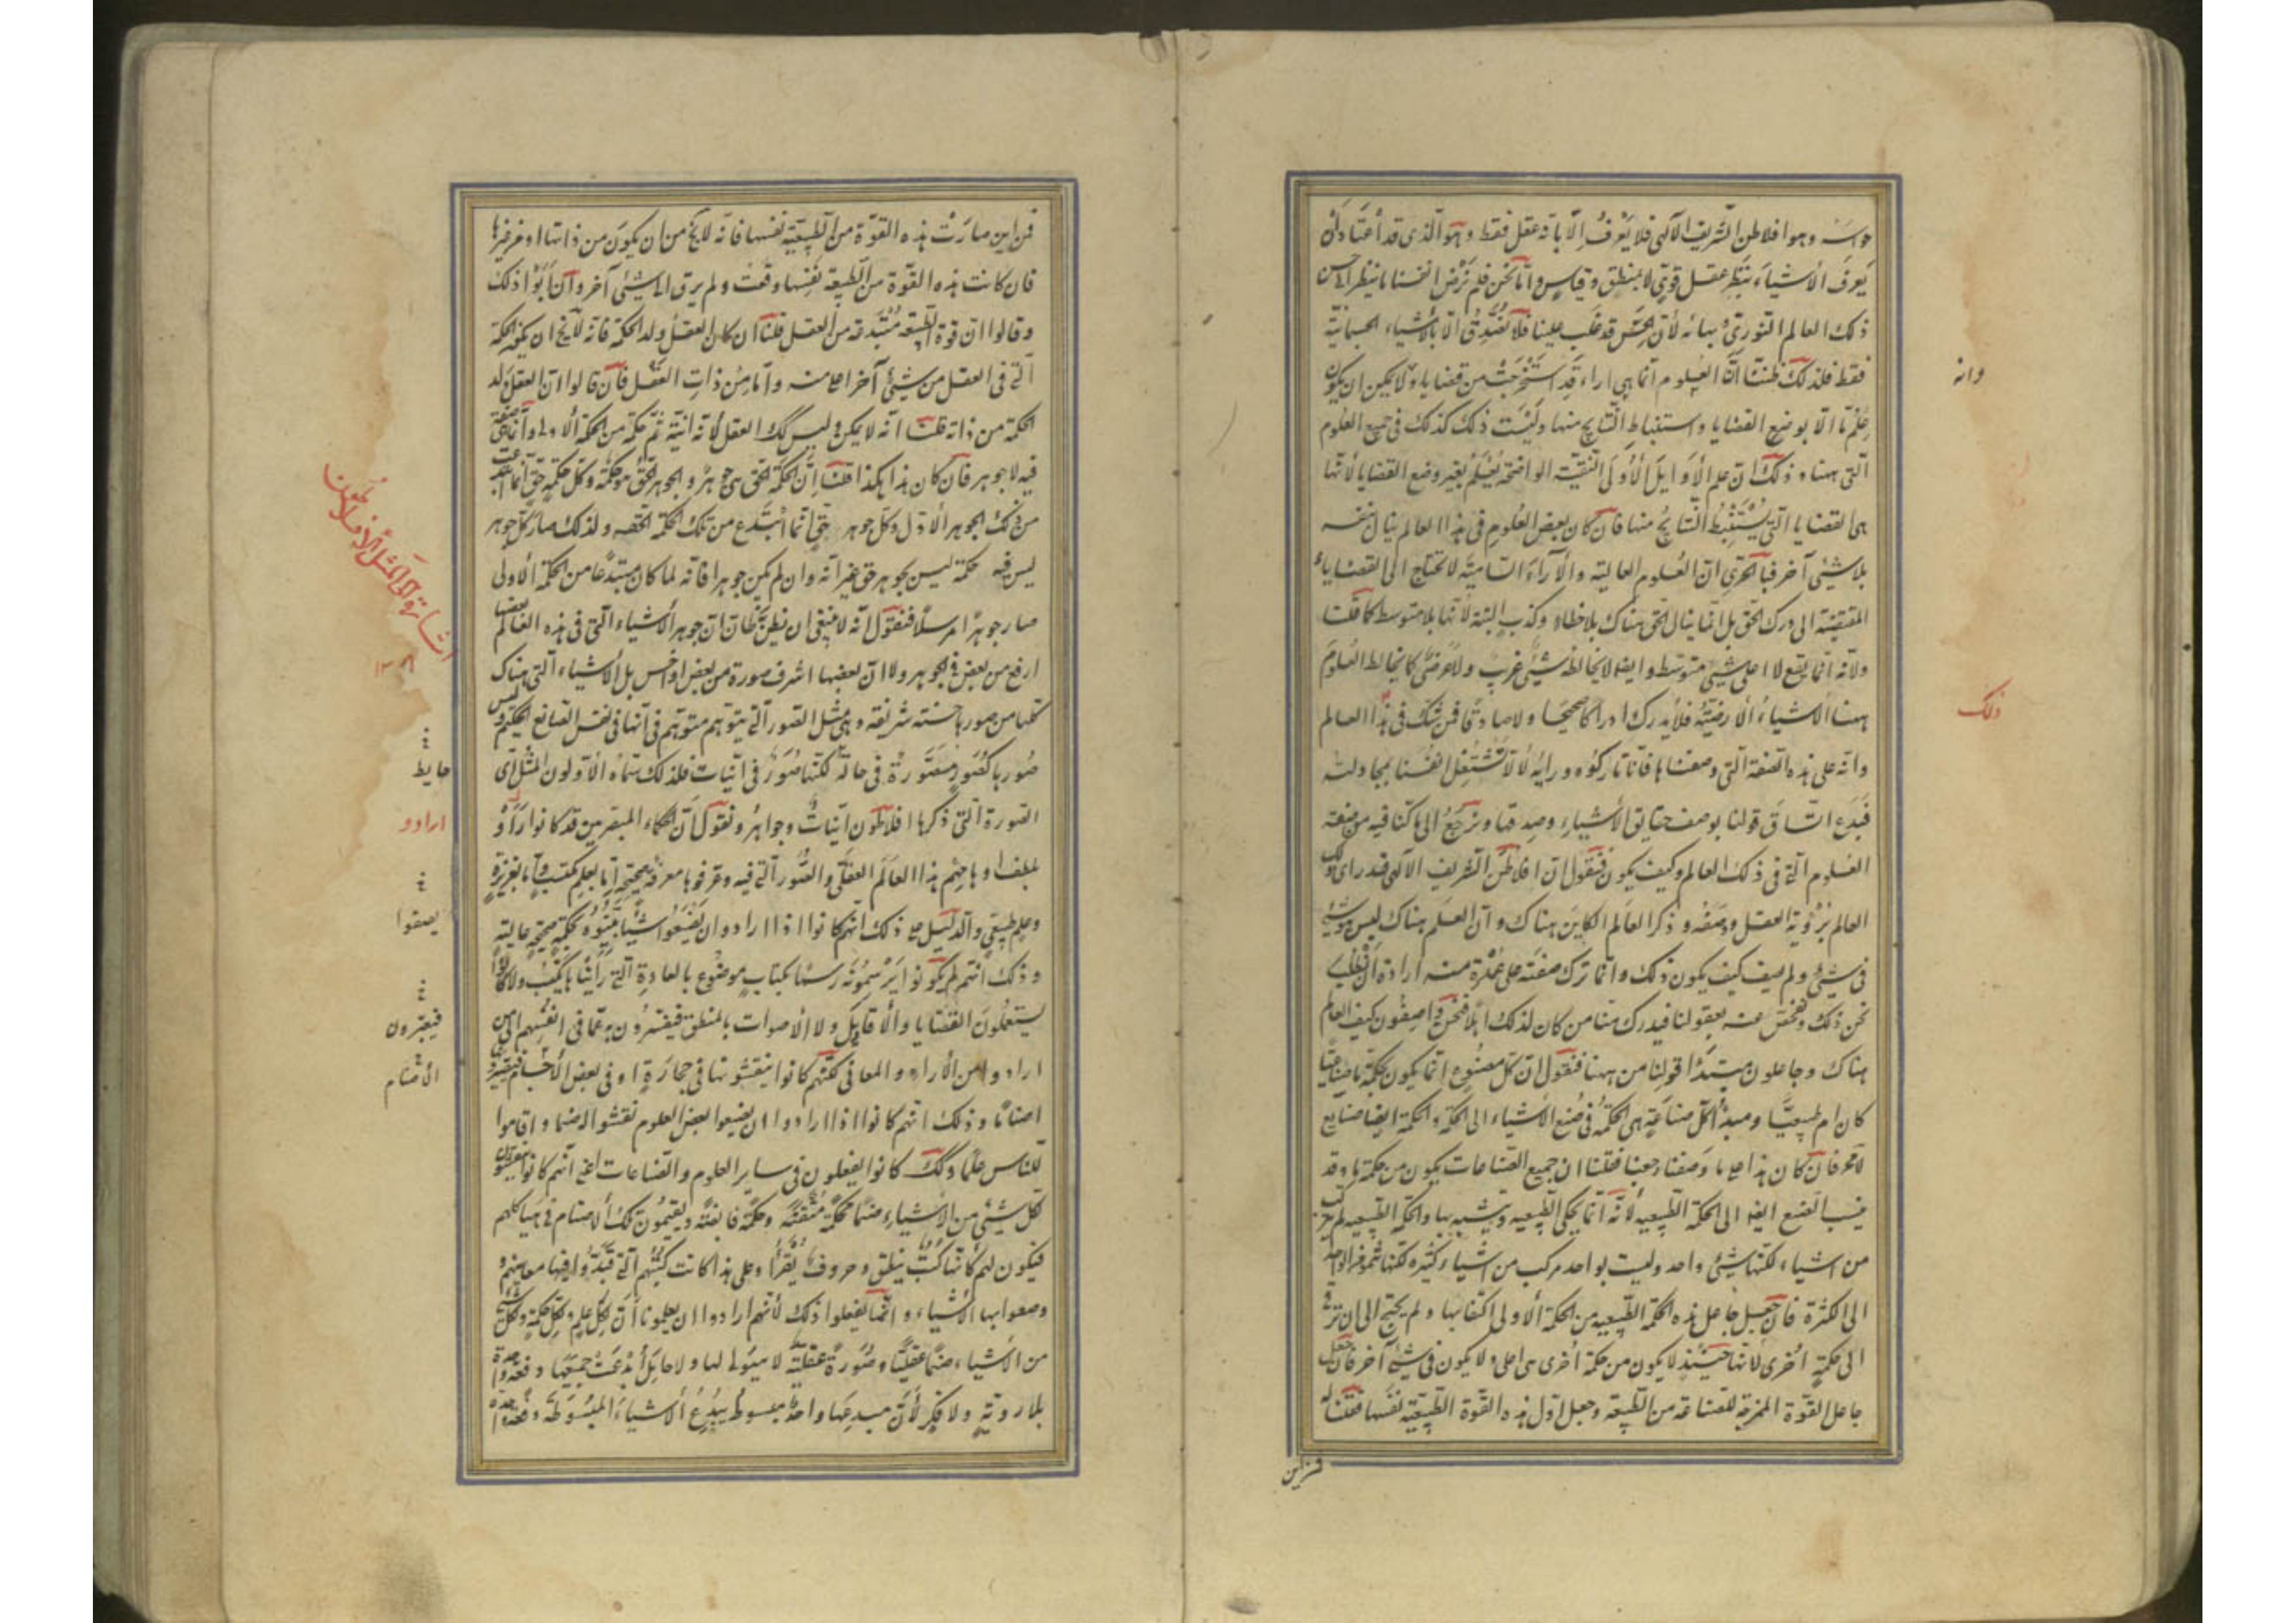 حواسه وهو افلاطن الشريف الآلهى فلا يعرف الا بانه عقل فقط وهو الذى قد أعتاد أن
يعرف الأشياء بنظر عقل قوىّ لا بمنطق وقياس وامّا نحن فلم نرض انفسنا بالنظر الى حسن
ذلك العالم النورى وبهائه لأن الحسّ قد غلب علينا فلا نصدّق الّا بالأشياء الجسمانية
فقط فلذلك ظننّا أنّ العلوم انما هى اراء قد استخرجت من قضايا ولا يمكن ان يكون
علم ما الّا بوضع القضايا واستنباط النّتايج منها وليست ذلك كذلك فى جميع العلوم
الّتى ههنا وذلك ان علم الأوايل الأولى النقيّة الواضحة يُعلم بغير وضع القضايا لأنها
هى القضايا التى يستنبط النتايج منها فان كان بعض العلوم فى هذا العالم ينال نفسه
بلا شيئ آخر فبالحرى انّ العلوم العالية والآراء السّامية لا تحتاج الى القضاياء
المقتضية الى درك الحقّ بل انّما ينال الحق هناك بلا خطاء وكذب البتة لأنها بلا متوسط كما قلنا
ولأنه انّما يقع لا على شيئ متوسّط وايضا لا يخالطه شيئ غريب ولا عرضىّ كما يخالط العلوم
ههنا الأشياء الأرضيّة فلا يدرك ادراكا صحيحا ولا صادقا فمن شكّ فى هذا العالم
وانه على هذه الصّفة التى وصفنا ها فانّا تاركوه ورايه لألّا تشتغل انفسنا بمجادلته
فندع اتساق قولنا بوصف حقايق الأشياء وصدقها ونرجع الى ما كنّا فيه من صفة
العلوم الّتى فى ذلك العالم وكيف يكون فنقول ان افلاطن الشريف الآلهى قد راى ذلك
العالم برؤية العقل ووصفه وذكر العالم الكاين هناك وأن العلم هناك ليس هو شيئ
فى شيئ ولم يصف كيف يكون ذلك وانما ترك صفته على عمد منه ارادة أن نطلب
نحن ذلك ونفحص عنه بعقولنا فيدرك منّا من كان لذلك اهلا فنحن واصفون كيف العالم
هناك وجاعلون مبتدأ قولنا من ههنا فنقول ان كل مصنوع انما يكون بحكمة ما صناعيا
كان ام طبيعيّا ومبدأ كلّ صناعة هى الحكمة فى صُنع الأشياء الى الحكمة والحكمة ايضا صنايع
لا محة فان كان هذا على ما وصفنا رجعنا فقلنا ان جميع الصّناعات يكون من حكمة ما وقد
ينسب الصّنع ايضا الى الحكمة الطّبيعيه لأنّه انما يحكى الطبيعيه ويشبه بها والحكمة الطبيعيه لم تركب
من اشياء لكنها شيئ واحد وليست بواحد مركب من اشياء كثيرة لكنها تنمو من الواحد
الى الكثرة فان جعل جاعل هذه الحكمة الطّبيعيه من الحكمة الاولى اكتفا بها ولم يحتج الى ان ترقى
الى حكمةٍ اُخرى لأنّها حينئذٍ لا يكون من حكمة اُخرى هى اعلى ولا يكون فى شيئ آخر فان جعل
جاعل القوة المخرجة للصّناعة من الطّبيعة وجعل اول هذه القوّة الطّبيعيّة نفسها فقلنا له
فمن اين
وانه
ذلك
فمن اين صارت هذه القوّة من الطّبيعية نفسها فانه لا يخ من ان يكون من ذاتها او من غيرها
فان كانت هذه القوّة من الطّبيعة نفسها وقفت ولم يرق الى شيئى آخر وان أبوا ذلك
وقالوا انّ قوة الطبيعة مبتدعة من العقل قلنا ان كان العقل ولد الحكمة فانه لا يخ ان يكون الحكمة
الّتى فى العقل من شيئ آخر اعلا منه وامّا من ذات العقل فان قالوا انّ العقل ولد
الحكمة من ذاته قلنا انه لا يمكن ليس كك العقل لأنه انية ثم حكمة من الحكمة الأولى وأنما هى صفة
فيه لا جوهر فان كان هذا هكذا قلنا انّ الحكمة الحق هى جوهرٌ والجوهر الحقّ هو حكمة وكلّ حكمةٍ حقّ انما
من ذلك الجوهر الأول وكلّ جوهر حقّ انّما ابتدع من تلك الحكمة الحقه ولذلك صار كلّ جوهر
ليس فيه حكمة ليس بجوهر حق غير انّه وان لم يكن جوهرا فانه لما كان مبتدعا من الحكمة الأولى
صار جوهرًا مرسلًا فنقول انّه لا ينبغى ان يظن ظان ان جوهر الأشياء الّتى فى هذه العالم بعضها
ارفع من بعض فى الجوهر ولا انّ بعضها اشرف صورة من بعض او اخس بل الأشياء الّتى هناك
كلها من صورها حسنة شريفة وهى مثل الصّور الّتى يتوهّم متوهّم فى انها فى نفس الصّانع الحكيم وليس
صورها كصورٍ مصوّرة فى حائط لكنّها صُورٌ فى انّيات فلذلك سمّاه الأولون المُثل اى
الصّورة الّتى ذكرها افلاطون انّياتٌ وجواهرُ ونقول انّ الحكماء المبصرين قد كانوا رَأَوْا
بلطف اوهامهم هذا العالم العقلىّ والصُّور الّتى فيه وعرفوها معرفة صحيحة امّا بعلمٍ مكتسب وامّا بغريزةٍ
وعلم طبيعىّ والدليل على ذلك انّهم كانوا اذا ارادوا ان يضعوا شيئًا بيّنوه بحكمةٍ صحيحةٍ عالية
وذلك انّهم لم يكونوا يرسمونه رسما بكتابٍ موضوع بالعادة الّتى رأينا ها بكتب ولا كانوا
يستعملون القضايا والأقاويل ولا الأصوات بالمنطق فيفسرون به عمّا فى انفسهم الى من
ارادوا من الأراء والمعانى لكنّهم كانوا ينقشونها فى حجارةٍ او فى بعض الأجسام فيصيرونها
اصنامًا وذلك انّهم كانوا اذا ارادوا ان يضعوا بعض العلوم نقشوا له صنما واقاموا
للناس علما وكذلك كانوا يفعلون فى ساير العلوم والصّناعات اعنى انّهم كانوا ينقشون
لكل شيئ من الأشياء صنمًا بحكمة متقنة وحكمة فايضة ويقيمون تلك الأصنام فى هياكلهم
فيكون لهم كأنّها كُتبٌ ينطق وحروفٌ تُقرأُ وعلى هذا كانت كتبهم الّتى قيّدوا فيها معانيهم و
وصفوا بها الأشياء وانّما يفعلوا ذلك لأنّهم ارادوا ان يعلمونا أنّ لكلّ علم ولكلّ حكمةٍ ولكلّ شيئ
من الأشياء صنمًا عقليًا وصُورةً عقليّة لا هيولى لها ولا حامل أُبدعت جميعها دفعة واحدة
بلا رويّةٍ ولا فكر لأنّ مبدعها واحدٌ مبسوط يُبدع الأشياء المبسوطة دفعة واحدة
اشارة الى المُثل الأفلاطون
حايط
ارادو
يصفوا
فيعبّرون
الأصنام